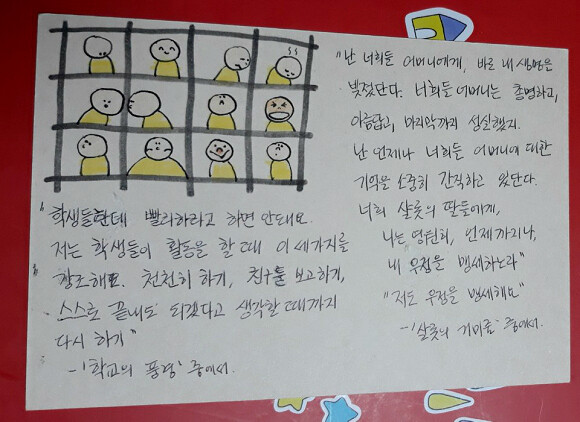 "학생들한테 빨리하라고 하면 안돼요.
저는 학생들이 활동을 할 때 이 세가지를
강조해요. 천천히 하기, 친구들 보고하기,
스스로 끝내도 되겠다고 생각할 때까지
다시 하기"
-'학교의 풍경' 중에서.
"난 너희들 어머니에게, 바로 내 생명을
빚졌단다. 너희들 어머니는 총명하고,
아름답고, 마지막까지 성실했지.
난 언제나 너희들 어머니에 대한
기억을 소중히 간직하고 있단다.
너희 샬롯의 딸들에게,
나는 영원히, 언제까지나,
내 우정을 맹세하노라"
"저도 우정을 맹세해요"
-'샬롯의 거미줄' 중에서.